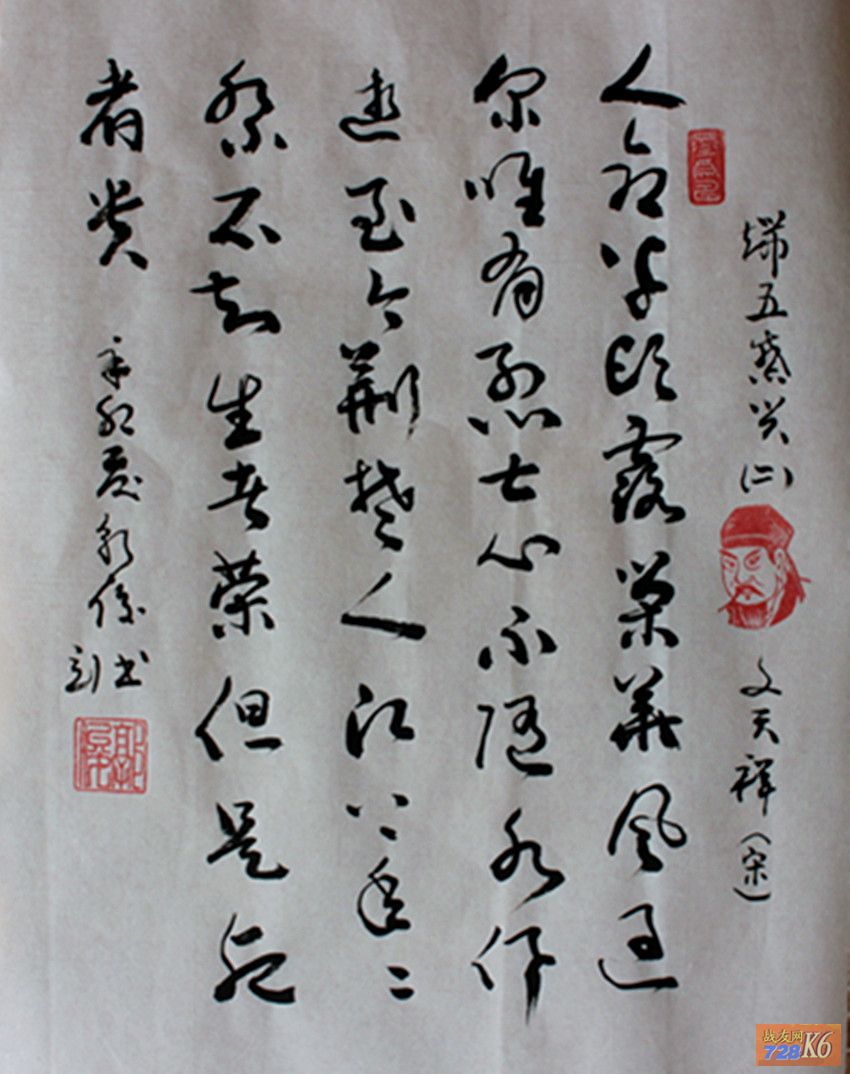 端五感兴(二) 文天祥(宋)
人命草头露荣華风过
尔唯有烈士心不随水俱
逝至今荆楚人江上年々
祭不知生者荣但是死
者贵 辛卯夏 书
战友网
728K6